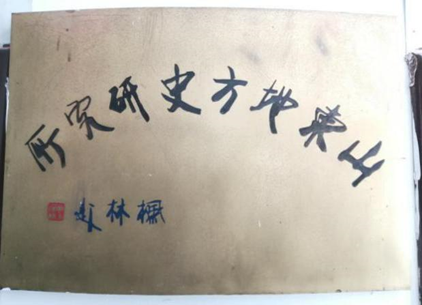 山東地方史研究所
林